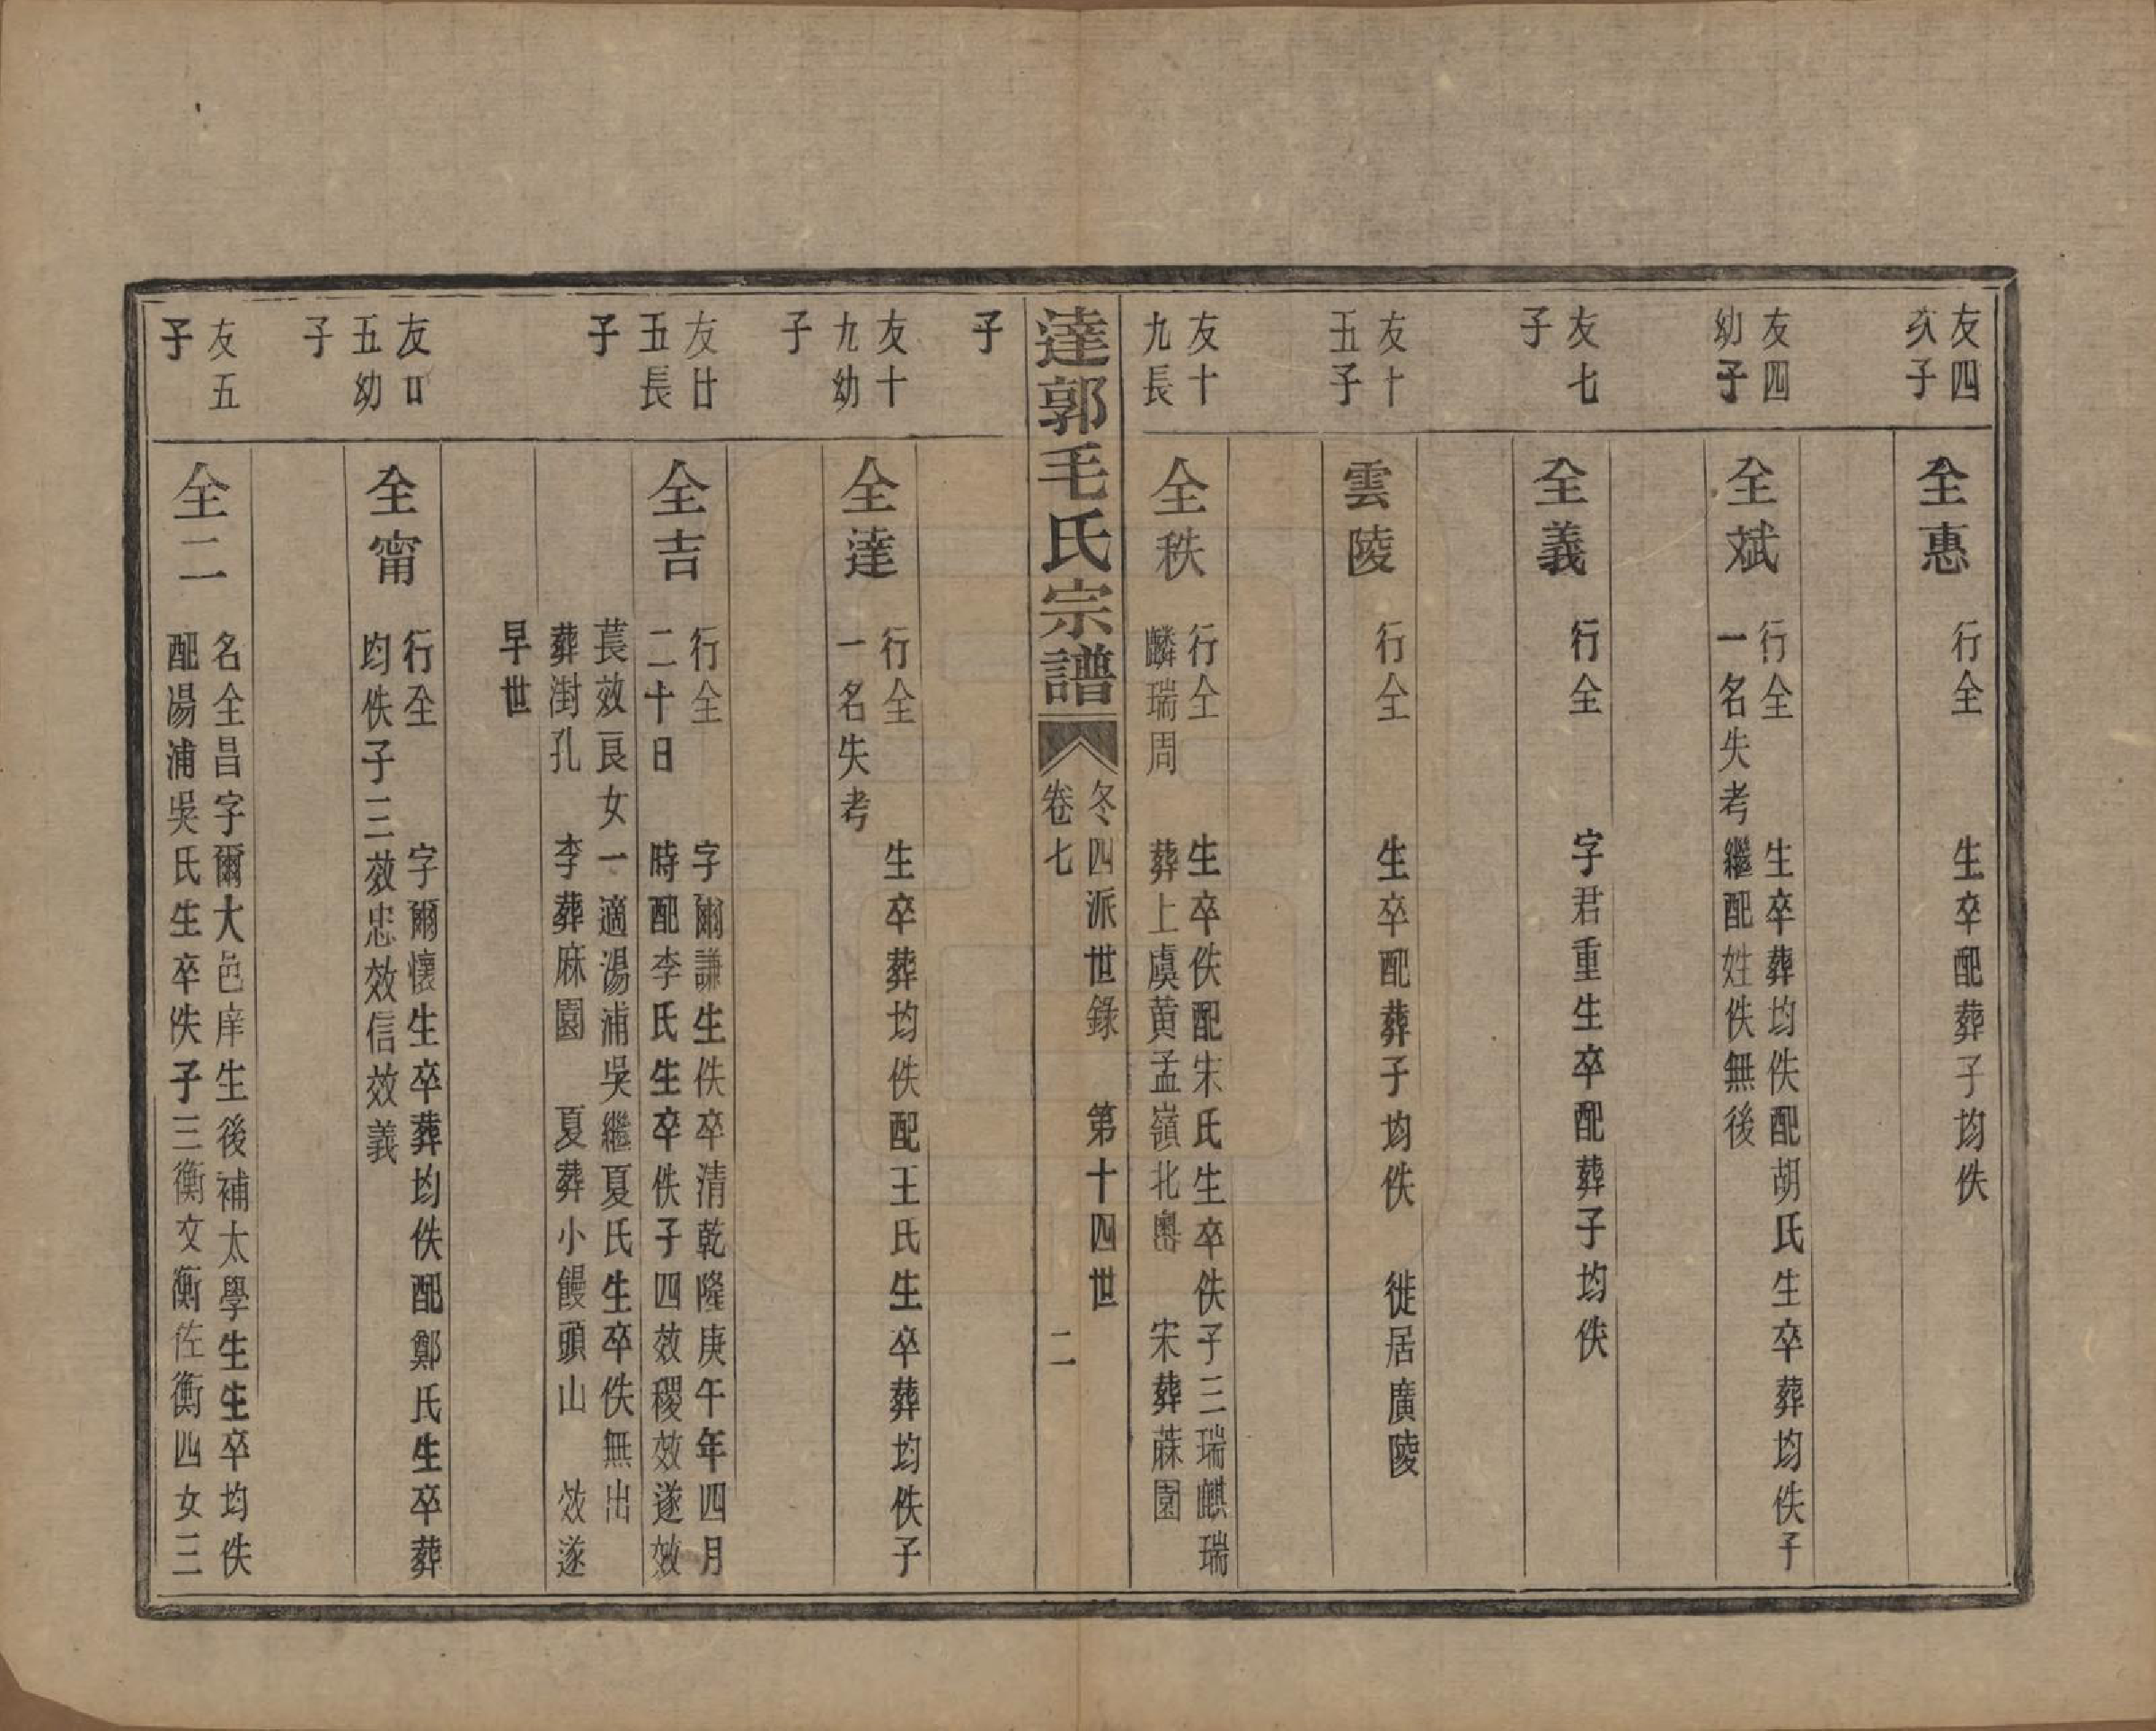 友四
次子
全惠
行全　生卒配葬子均佚
友四
幼子
全斌
行全　生卒葬均佚配胡氏生卒葬均佚子
一名失考繼配姓佚無後
友七
子
全義
行全　字君重生卒配葬子均佚
友十
五子
雲陵
行全　生卒配葬子均佚　徙居廣陵
友十
九長
全秩
行全　生卒佚配宋氏生卒佚子三瑞麒瑞
麟瑞周　葬上虞黄孟嶺北嶴　宋葬蔴園
達郭毛氏宗譜
冬四派世錄　第十四世
卷七　二
子
友十
九幼
子
全達
行全　生卒葬均佚配王氏生卒葬均佚子
一名失考
友廿
五長
子
全吉
行全　字爾謙生佚卒清乾隆庚午年四月
二十日　時配李氏生卒佚子四效稷效遂效
萇效良女一適湯浦吳繼夏氏生卒佚無出
葬澍孔　李葬庥園　夏葬小饅頭山　效遂
早世
友廿
五幼
子
全甯
行全　字爾懷生卒葬均佚配鄭氏生卒葬
均佚子三效忠效信效義
友五
子
全二
名全昌字爾大邑庠生後補太學生生卒均佚
配湯浦吳氏生卒佚子三衡文衡佐衡四女三